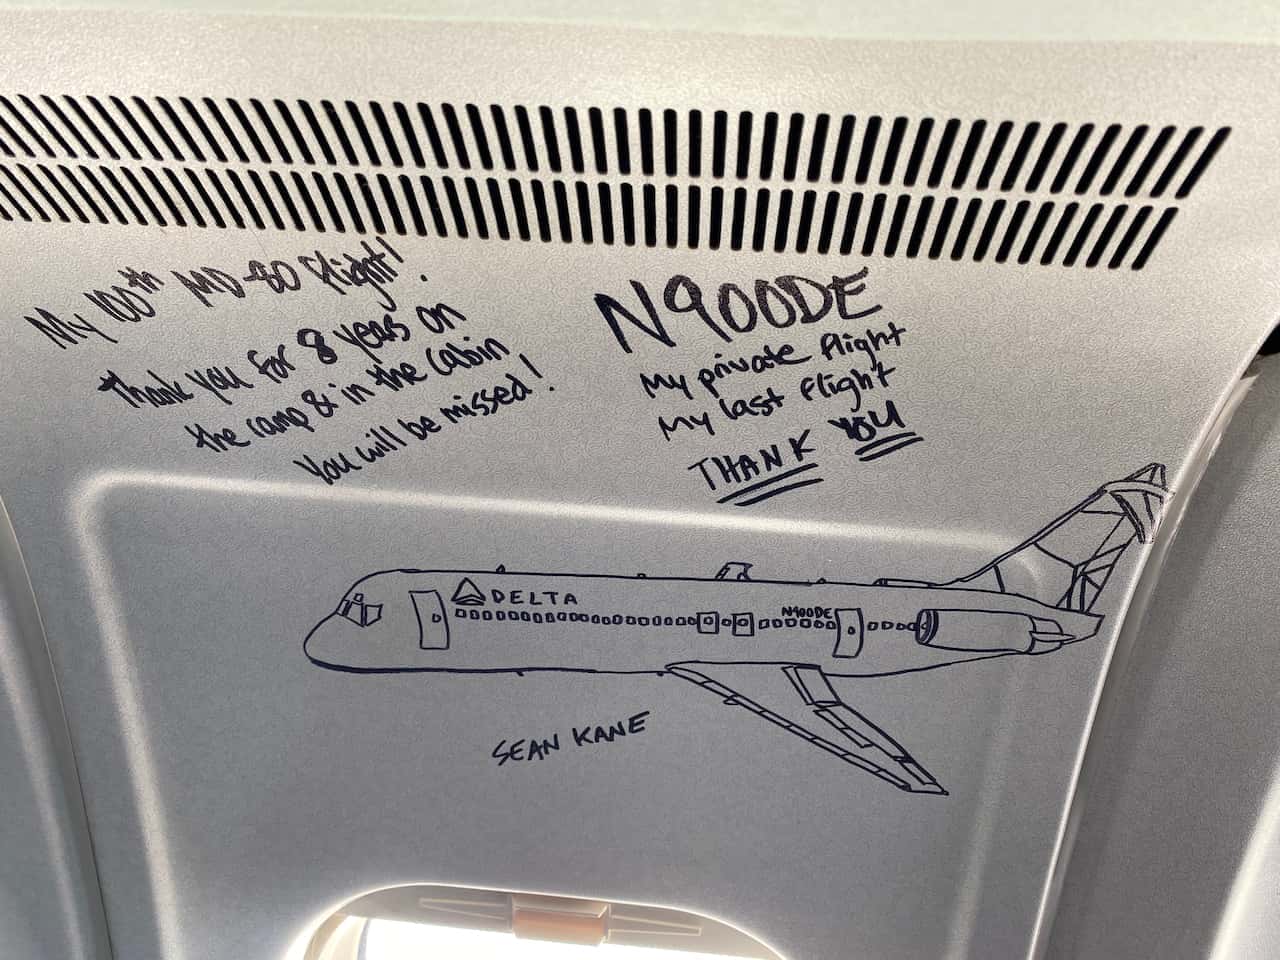 My 100th MD-80 Flight!
Thank you for 8 years on
the ramp & in the cabin
You will be missed!
N900DE
My private flight
My last flight
THANK YOU
DELTA
N900DE
SEAN KANE